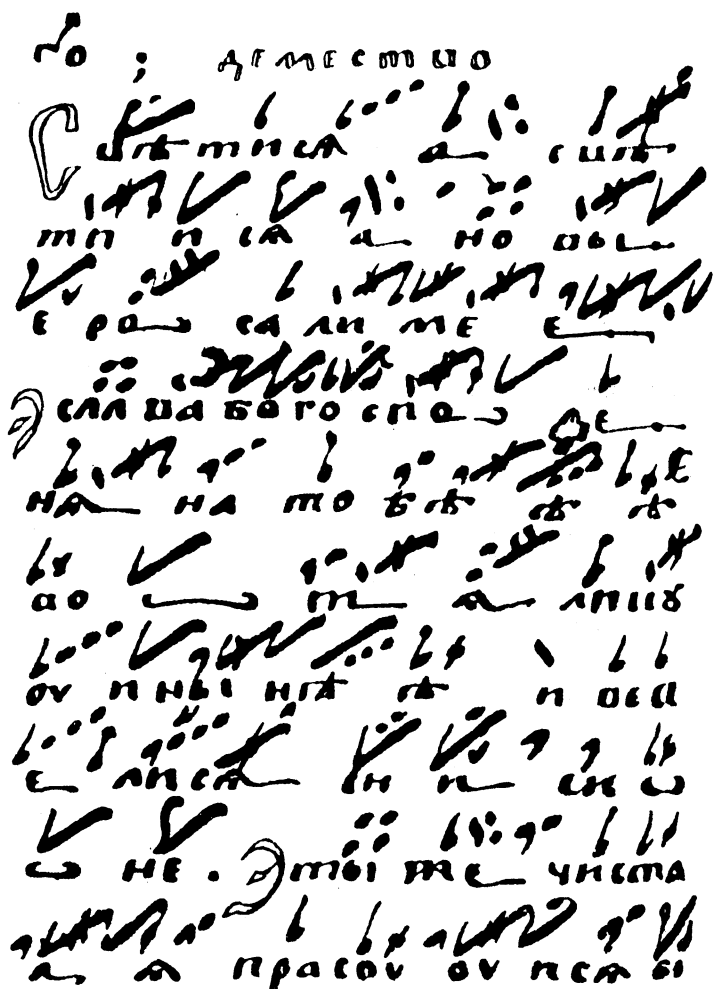 ДЕМЕСТВО
СВѢТИСѦ А СВѢ
ТИ И СѦ А НОВЫ
Е РО САЛИ МЕ Е
СЛА ВА БО ГО СПО ДЕ
НѦ НА ТО БѢ Ѣ Ѣ
ВО Т А ЛИЦꙊ
ОУ И НЫ НѢ Ѣ И ВЕСЕ
Е ЛИСѦ И И СИ Ѡ
Ѡ НЕ . ТЫ ЖЕ ЧИСТА
А Ѧ ПРАСОУ ОУ ИСѦ БГ